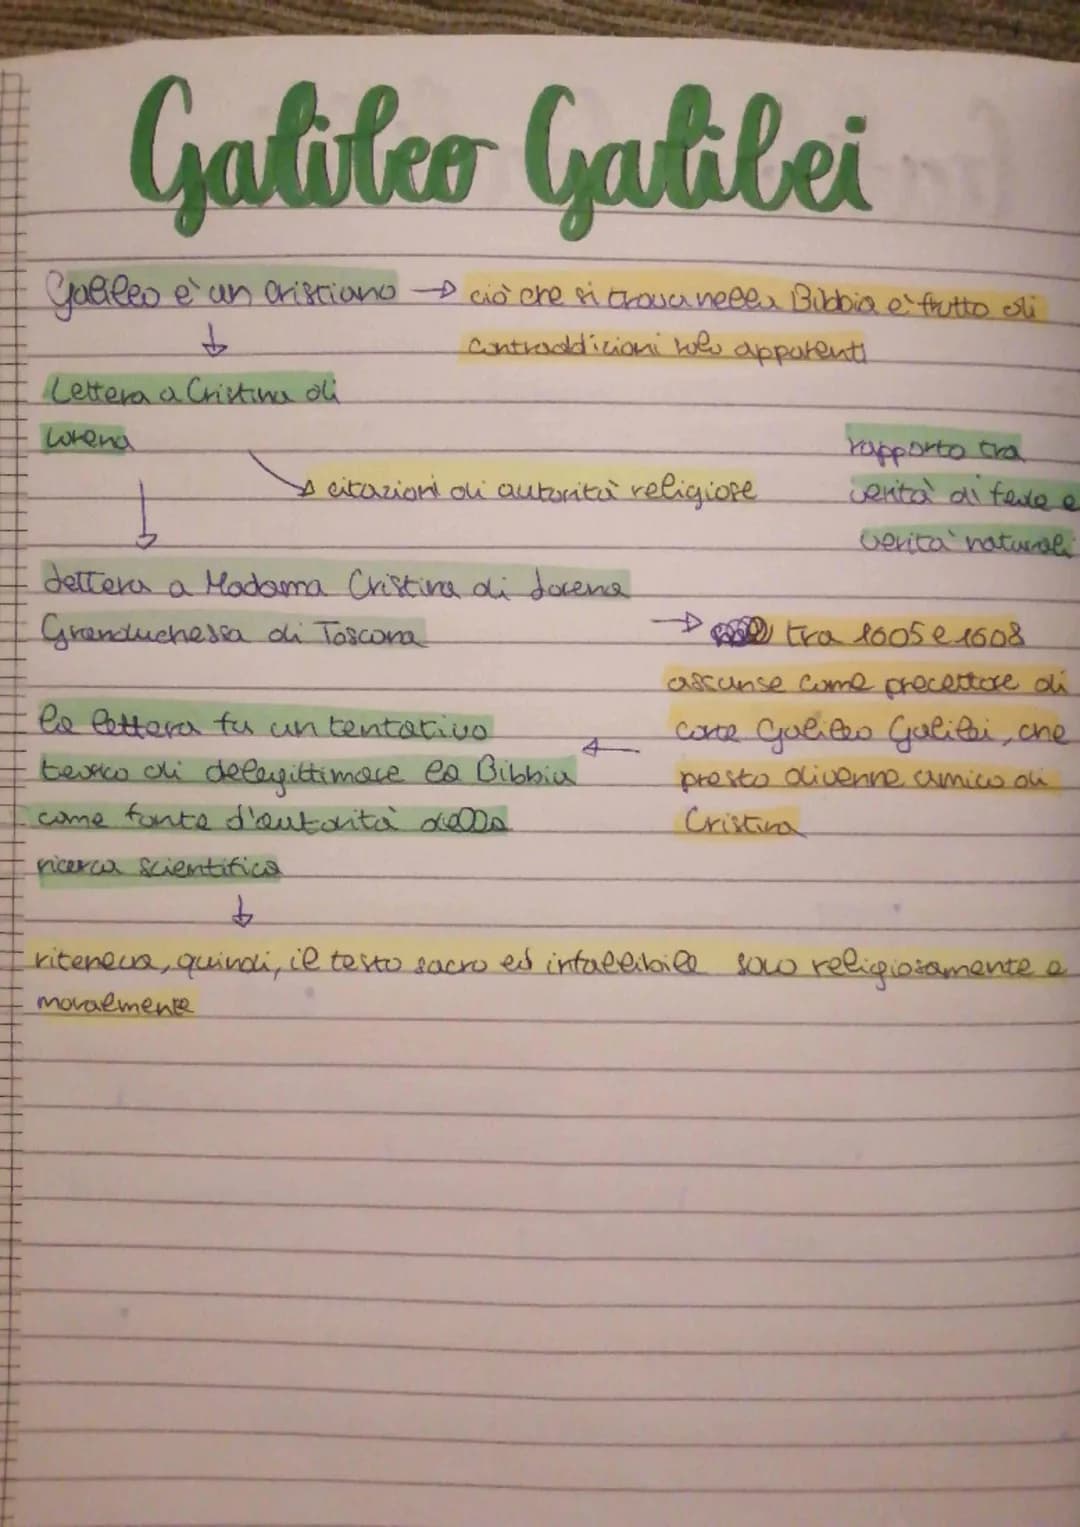 Galileo Galilei
Galileo è un cristiano → ciò che si trova nella Bibbia è frutto di
contraddizioni solo apparenti
↓
Lettera a Cristina di
Lorena
→ citazioni di autorità religiose
rapporto tra
verità di fede e
verità naturali
↓
Lettera a Madama Cristina di Lorena
Granduchessa di Toscana
→ tra 1605 e 1608
assunse come precettore di
corte Galileo Galilei, che
presto divenne amico di
Cristina
←
la lettera fu un tentativo
teorico di delegittimare la Bibbia
come fonte d'autorità della
ricerca scientifica
↓
riteneva, quindi, il testo sacro ed infallibile solo religiosamente e
moralmente